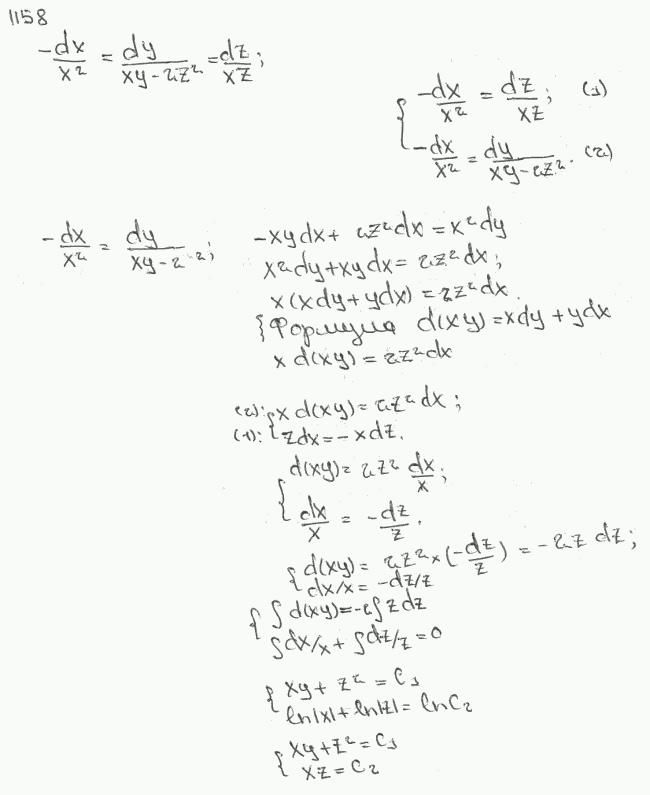 1158
-dx/x² = dy/(xy-2z²) = dz/xz;
{ -dx/x² = dz/xz; (1)
-dx/x² = dy/(xy-2z². (2)
-dx/x² = dy/(xy-2 ²; -xydx+ 2z²dx=x²dy
x²dy+xydx= 2z²dx;
x(xdy+ydx)=2z²dx.
{Формула d(xy)=xdy+ydx
x d(xy)=2z²dx
(2): { x d(xy)=2z²dx;
(1): zdx=-xdz.
{ d(xy)=2z² dx/x;
dx/x = -dz/z.
{ d(xy)= 2z²×(-dz/z) = -2z dz;
dx/x=-dz/z
{ ∫d(xy)=-2∫zdz
∫dx/x+ ∫dz/z=0
{ xy+ z² = C₁
ln|x|+ln|z|= lnC₂
{ xy+z²=C₁
xz=C₂